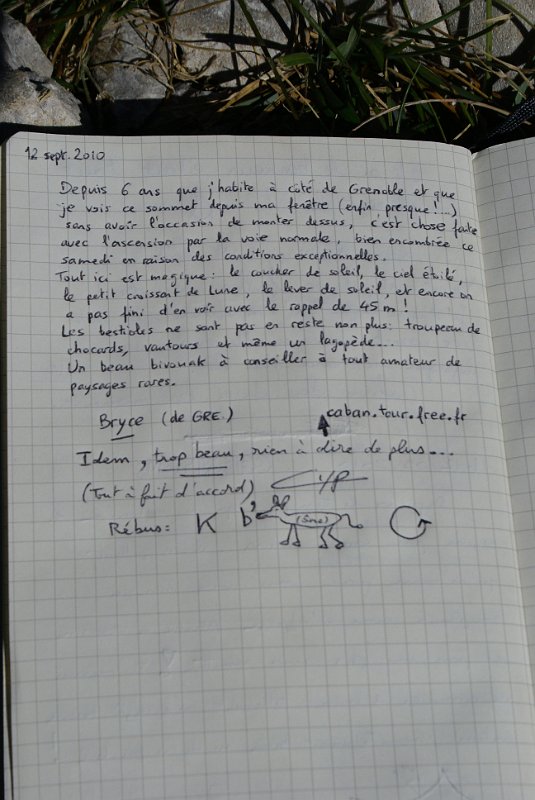 12 sept. 2010
Depuis 6 ans que j'habite à côté de Grenoble et que
je vois ce sommet depuis ma fenêtre (enfin presque !...)
sans avoir l'occasion de monter dessus, c'est chose faite
avec l'ascension par la voie normale, bien encombrée ce
samedi en raison des conditions exceptionnelles.
Tout ici est magique : le coucher de soleil, le ciel étoilé,
le petit croissant de Lune, le lever de soleil, et encore on
a pas fini d'en voir avec le rappel de 45 m !
Les bestioles ne sont pas en reste non plus : troupeau de
chocards, vautours et même un lagopède...
Un beau bivouak à conseiller à tout amateur de
paysages rares.
Bryce (de GRE.) caban.tour.free.fr
Idem, trop beau, rien à dire de plus...
(Tout à fait d'accord)
Rébus : K b' (âne)